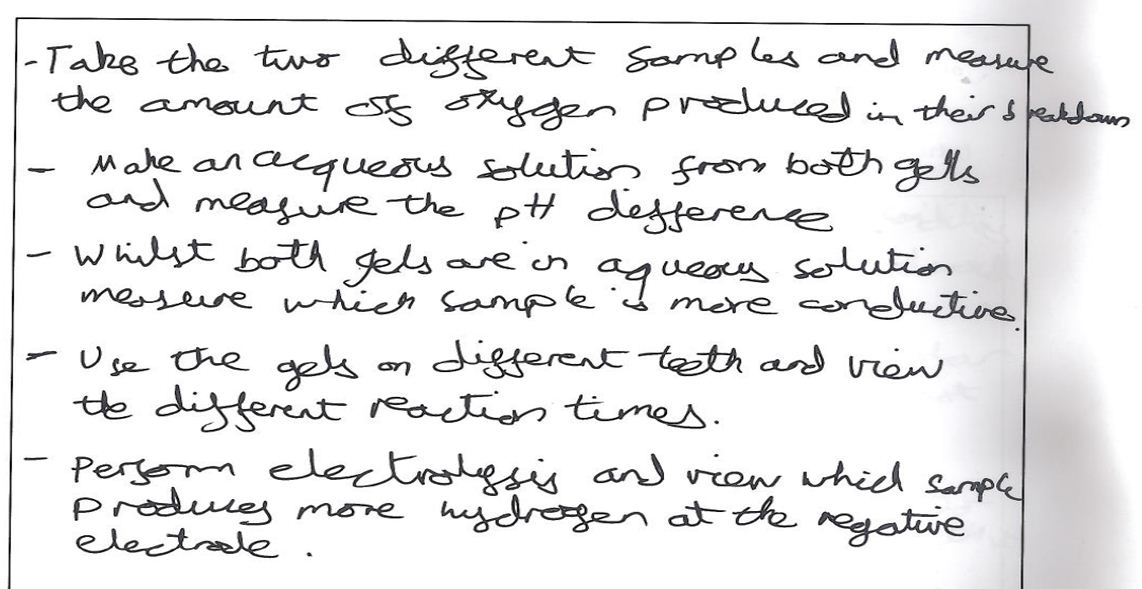 - Take the two different samples and measure
the amount of oxygen produced in their breakdown
- Make an acqueous solution from both gells
and measure the pH difference
- Whilst both gels are in aqueous solution
measure which sample is more conductive.
- Use the gels on different teeth and view
the different reaction times.
- Perform electrolysis and view which sample
produces more hydrogen at the negative
electrode.